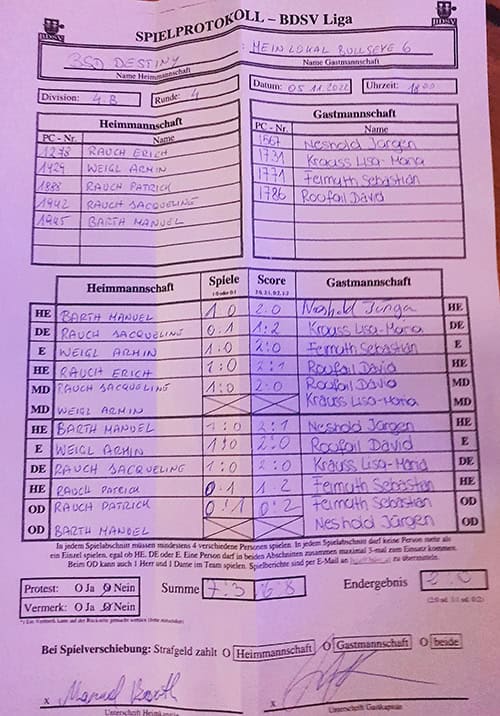 SPIELPROTOKOLL – BDSV Liga
BSD DESTINY : MEIN LOKAL BULLSEYE 6
Name Heimmannschaft Name Gastmannschaft
Division: 4.B Runde: 4 Datum: 05.11.2022 Uhrzeit: 18:00
Heimmannschaft Gastmannschaft
PC - Nr. Name PC - Nr. Name
1278 RAUCH ERICH 1567 Neshold Jürgen
1424 WEIGL ARMIN 1731 Krauss Lisa-Maria
1888 RAUCH PATRICK 1771 Feimuth Sebastian
1942 RAUCH JACQUELING 1786 Roufail David
1945 BARTH MANUEL
Heimmannschaft Spiele Score Gastmannschaft
1:0 oder 0:1 2:0, 2:1, 0:2, 1:2
HE BARTH MANUEL 1:0 2:0 Neshold Jürgen HE
DE RAUCH JACQUELING 0:1 1:2 Krauss Lisa-Maria DE
E WEIGL ARMIN 1:0 2:0 Feimuth Sebastian E
HE RAUCH ERICH 1:0 2:1 Roufail David HE
MD RAUCH JACQUELING 1:0 2:0 Roufail David MD
MD WEIGL ARMIN Krauss Lisa-Maria MD
HE BARTH MANUEL 1:0 2:1 Neshold Jürgen HE
E WEIGL ARMIN 1:0 2:0 Roufail David E
DE RAUCH JACQUELING 1:0 2:0 Krauss Lisa-Maria DE
HE RAUCH PATRICK 0:1 1:2 Feimuth Sebastian HE
OD RAUCH PATRICK 0:1 0:2 Feimuth Sebastian OD
OD BARTH MANUEL Neshold Jürgen OD
In jedem Spielabschnitt müssen mindestens 4 verschiedene Personen spielen. In jedem Spielabschnitt darf keine Person mehr als
ein Einzel spielen, egal ob HE, DE oder E. Eine Person darf in beiden Abschnitten zusammen maximal 3-mal zum Einsatz kommen.
Beim OD kann auch 1 Herr und 1 Dame im Team spielen. Spielberichte sind per E-Mail an zu übermitteln.
Protest: O Ja O Nein Summe 7:3 Endergebnis 2:0
Vermerk: O Ja O Nein (2:0 od. 1:1 od. 0:2)
Bei Spielverschiebung: Strafgeld zahlt O Heimmannschaft O Gastmannschaft O beide
x Manuel Barth x
Unterschrift Heimkapitän Unterschrift Gastkapitän